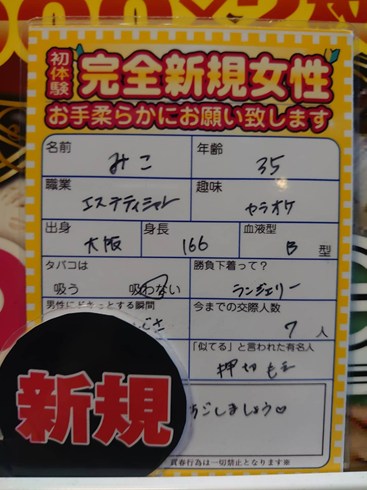 初体験
完全新規女性
お手柔らかにお願い致します
名前 みこ 年齢 35
職業 エステティシャン 趣味 カラオケ
出身 大阪 身長 166 血液型 B 型
タバコは 吸う 吸わない 勝負下着って? ランジェリー
男性にドキっとする瞬間 今までの交際人数
7 人
「似てる」と言われた有名人
押切もえ
しましょう♡
新規
買春行為は一切禁止となります※